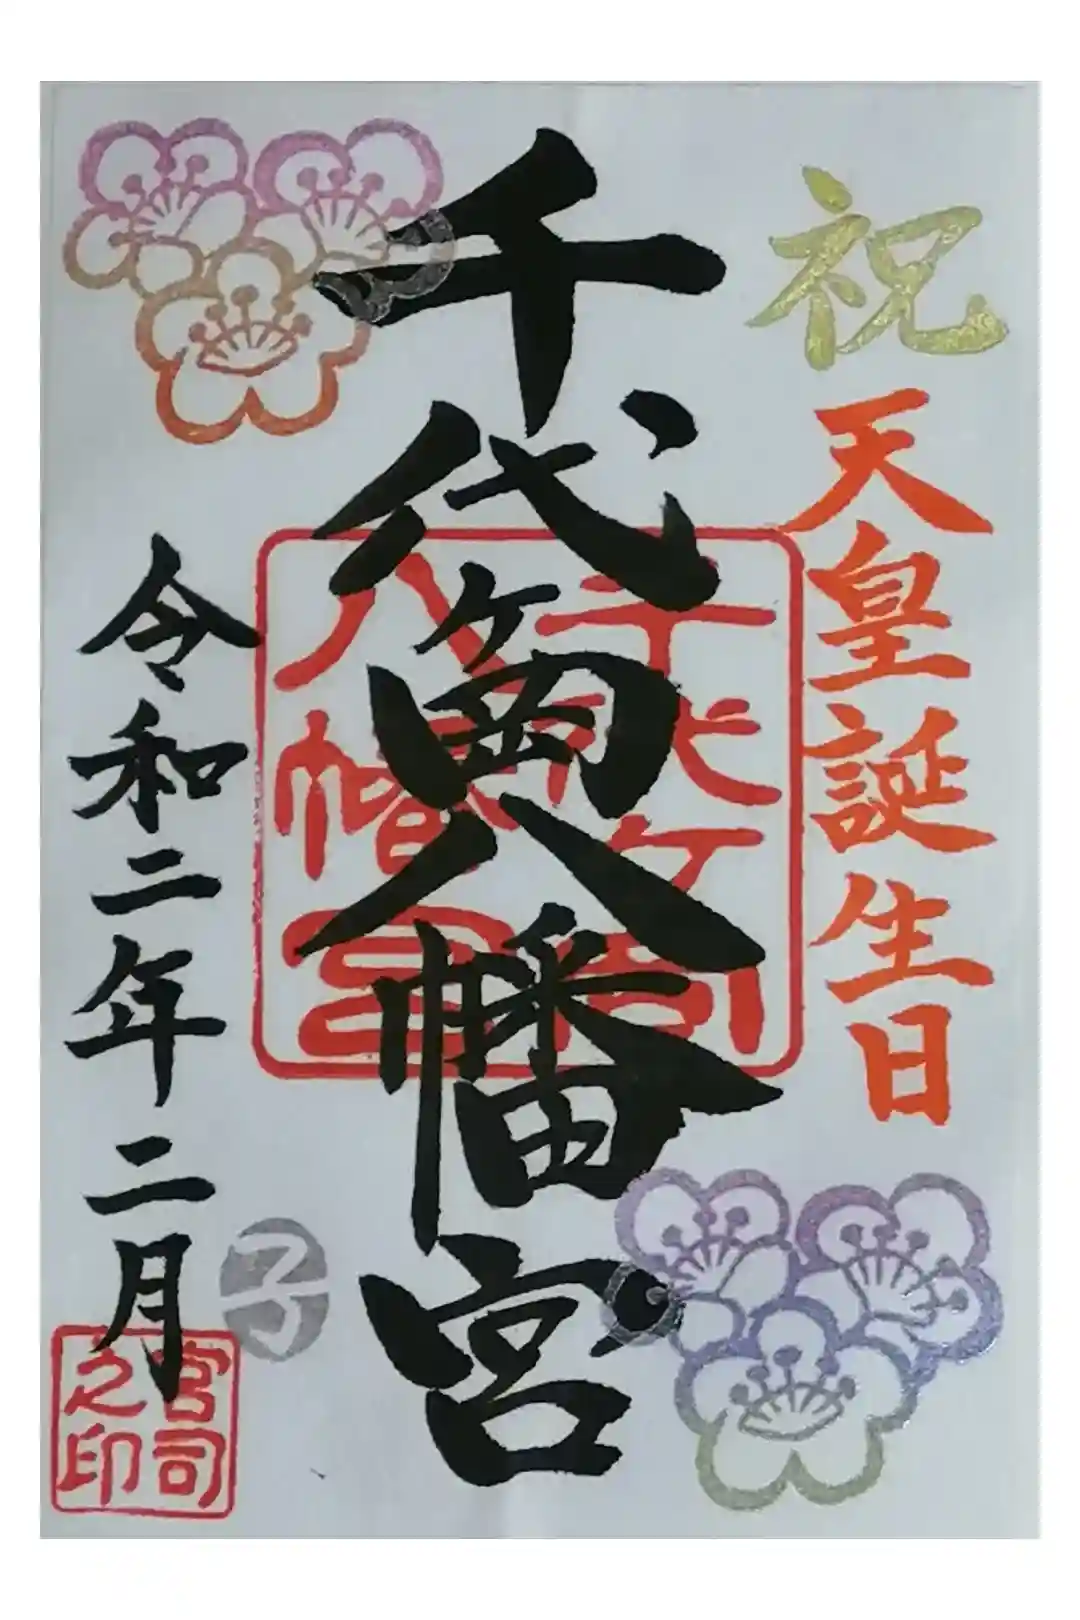 祝
天皇誕生日
千代ケ岡八幡宮
千代ケ岡
八幡宮
令和二年二月
子
宮司
之印